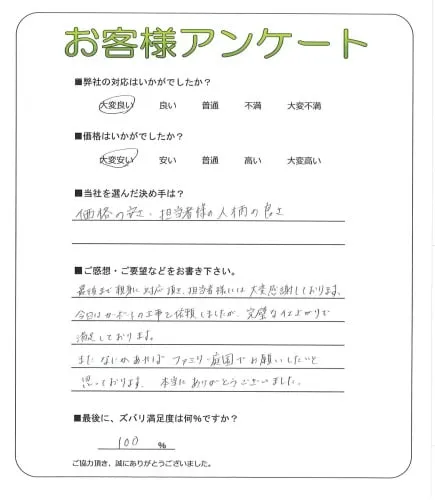 お客様アンケート
■弊社の対応はいかがでしたか？
大変良い 良い 普通 不満 大変不満
■価格はいかがでしたか？
大変安い 安い 普通 高い 大変高い
■当社を選んだ決め手は？
価格の安さ・担当者様の人柄の良さ
■ご感想・ご要望などをお書き下さい。
最後まで親身に対応頂き、担当者様には大変感謝しております。
今回はカーポートの工事を依頼しましたが、完璧な仕上がりで
満足しております。
またなにかあれば ファミリー庭園でお願いしたいと
思っております。本当にありがとうございました。
■最後に、ズバリ満足度は何％ですか？
100 ％
ご協力頂き、誠にありがとうございました。